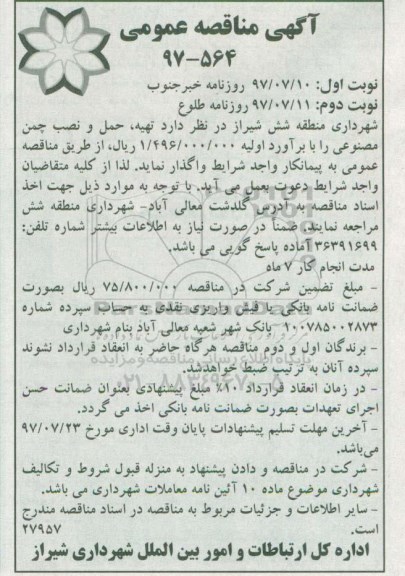 آگهی مناقصه عمومی
۹۷-۵۶۴
نوبت اول: ۹۷/۰۷/۱۰ روزنامه خبرجنوب
نوبت دوم: ۹۷/۰۷/۱۱ روزنامه طلوع
شهرداری منطقه شش شیراز در نظر دارد تهیه، حمل و نصب چمن
مصنوعی را با برآورد اولیه ۱/۴۹۶/۰۰۰/۰۰۰ ریال، از طریق مناقصه
عمومی به پیمانکار واجد شرایط واگذار نماید. لذا از کلیه متقاضیان
واجد شرایط دعوت بعمل می آید. با توجه به موارد ذیل جهت اخذ
اسناد مناقصه به آدرس گلدشت معالی آباد- شهرداری منطقه شش
مراجعه نمایند. ضمناً در صورت نیاز به اطلاعات بیشتر شماره تلفن:
۳۶۳۹۱۶۹۹ آماده پاسخ گویی می باشد.
مدت انجام کار ۷ ماه
- مبلغ تضمین شرکت در مناقصه ۷۵/۸۰۰/۰۰۰ ریال بصورت
ضمانت نامه بانکی یا فیش واریزی نقدی به حساب سپرده شماره
۱۰۰۷۸۵۰۰۲۸۷۳ بانک شهر شعبه معالی آباد بنام شهرداری
- برندگان اول و دوم مناقصه هرگاه حاضر به انعقاد قرارداد نشوند
سپرده آنان به ترتیب ضبط خواهدشد.
- در زمان انعقاد قرارداد ۱۰٪ مبلغ پیشنهادی بعنوان ضمانت حسن
اجرای تعهدات بصورت ضمانت نامه بانکی اخذ می گردد.
- آخرین مهلت تسلیم پیشنهادات پایان وقت اداری مورخ ۹۷/۰۷/۲۳
می‌باشد.
- شرکت در مناقصه و دادن پیشنهاد به منزله قبول شروط و تکالیف
شهرداری موضوع ماده ۱۰ آئین نامه معاملات شهرداری می باشد.
- سایر اطلاعات و جزئیات مربوط به مناقصه در اسناد مناقصه مندرج
است. ۲۷۹۵۷
اداره کل ارتباطات و امور بین الملل شهرداری شیراز